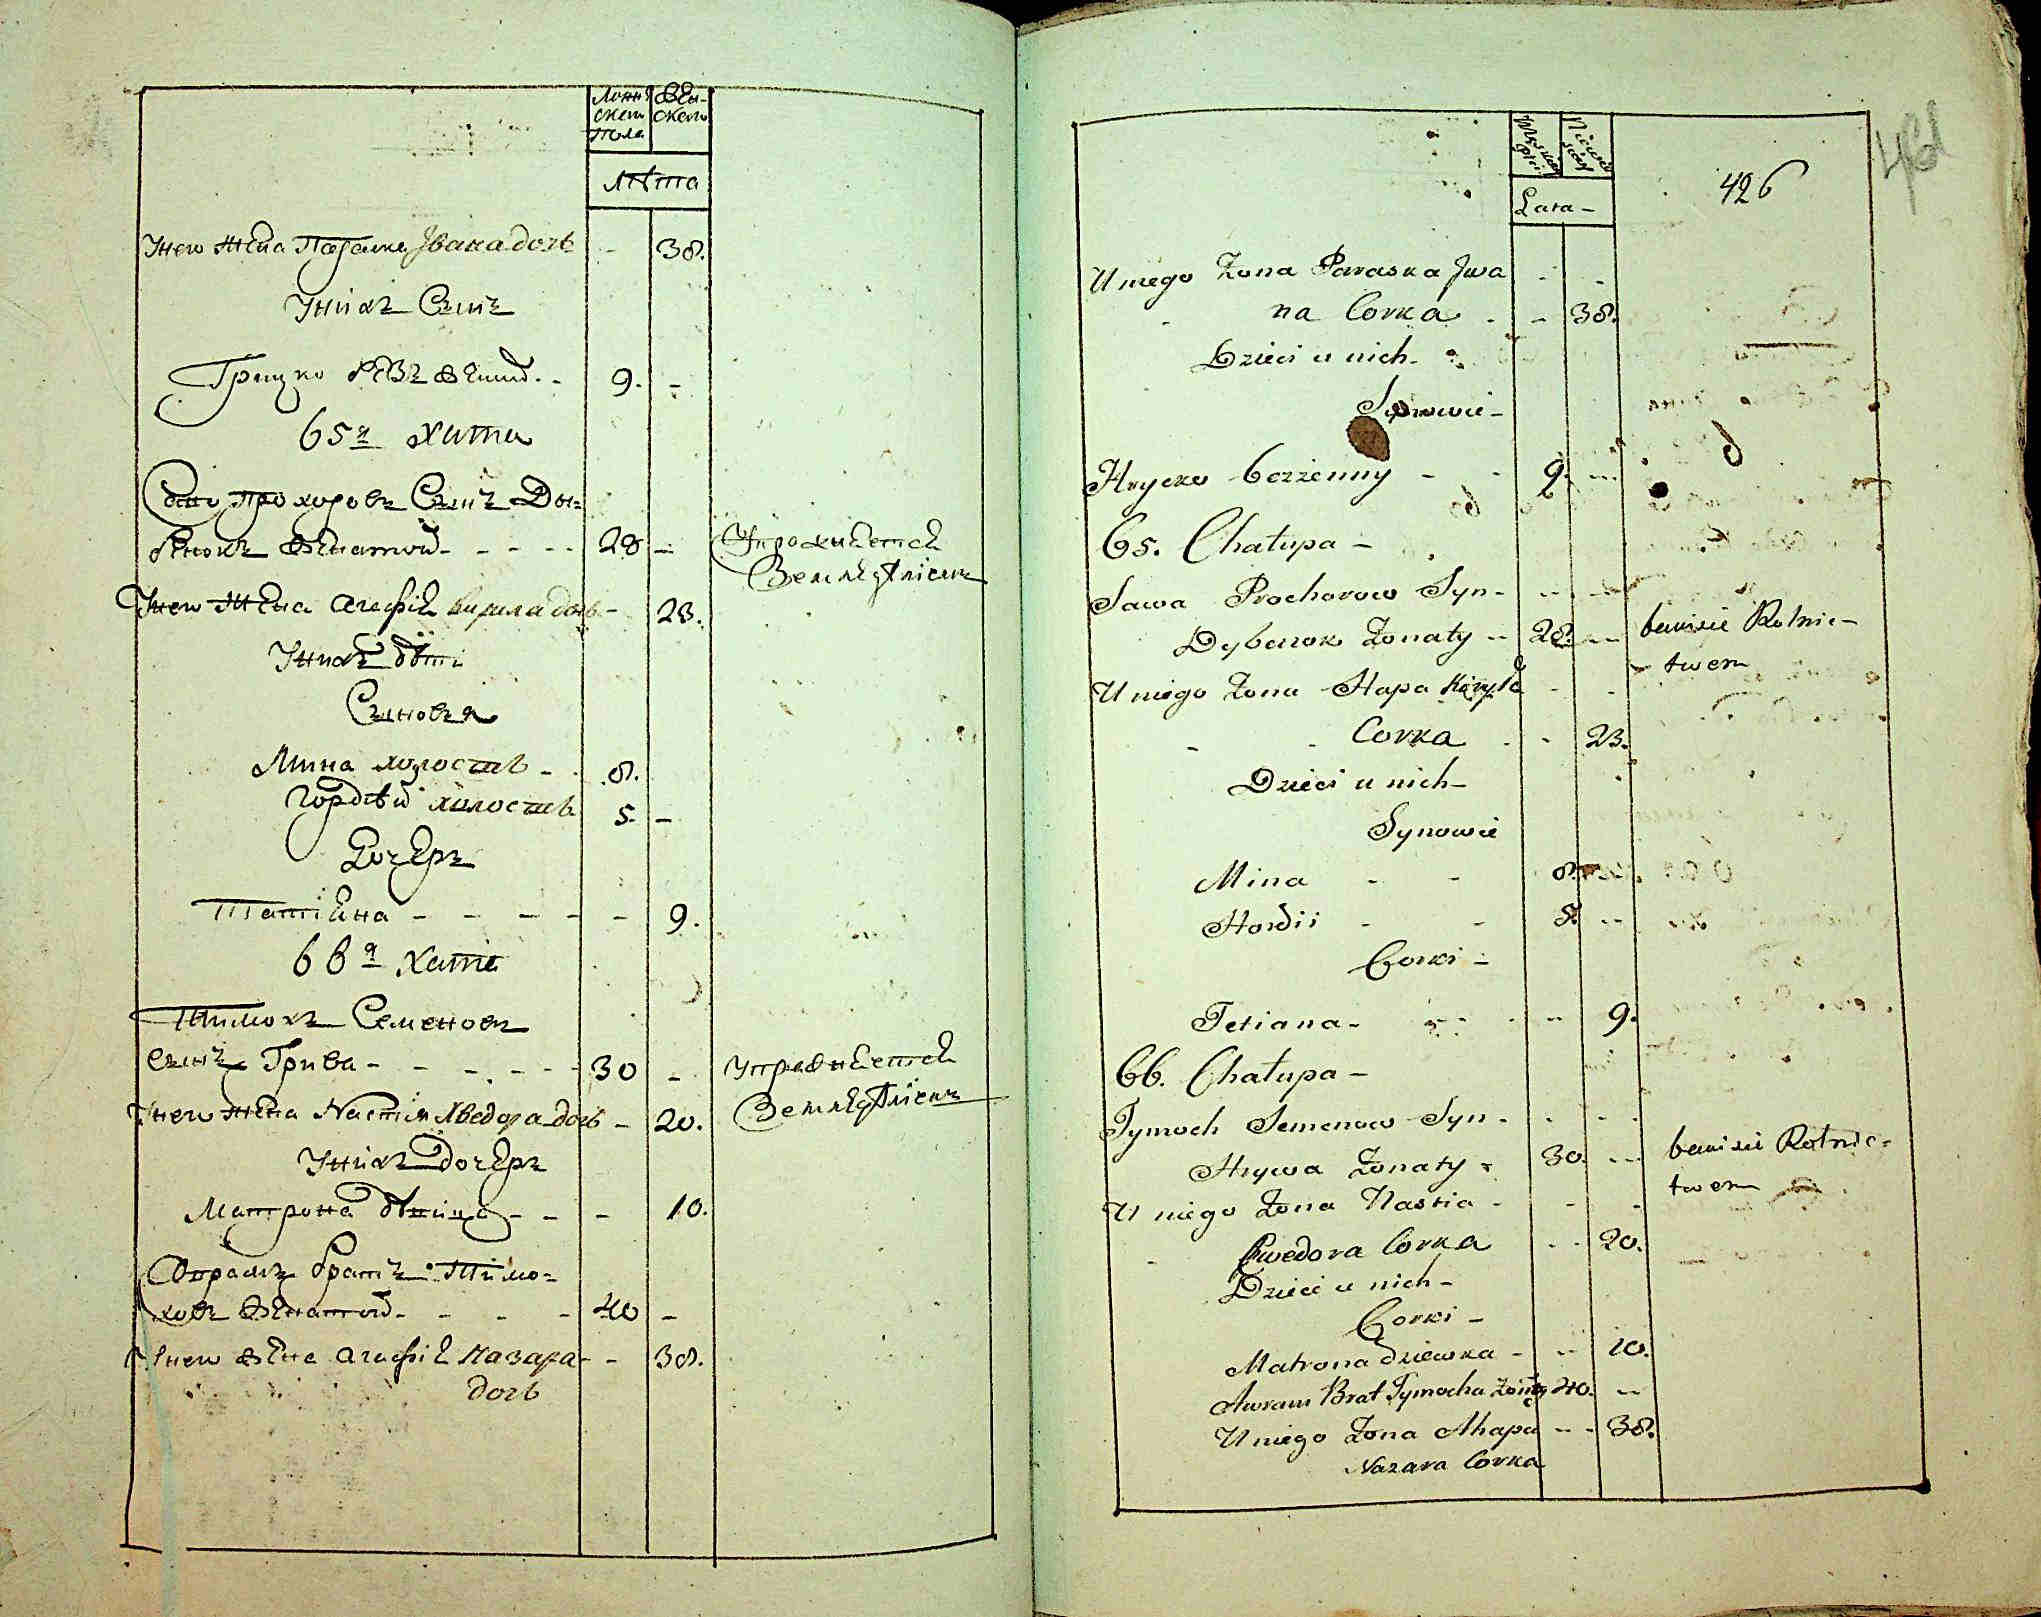 Мужескаго пола
Женскаго
лѣта
У него жена Параска Ивана дочь - 38.
У них Сынъ
Грицко безженный - 9. -
65я хата
Сава прохоровъ Сынъ Ды=
бенокъ женатой - 28 -
Упражняется
Земледѣлиемъ
У него жена Агафия Кирила дочь - 23.
У них дѣти
Сыновья
Мина холостъ - 8.
Гордѣй холостъ 5 -
Дочерь
Татіяна - 9.
66я хата
Тимохъ Семеновъ
Сынъ Грива - 30 -
Упражняется
Земледѣлиемъ
У него жена Настия Хведора дочь - 20.
У них дочерь
Матрона дѣвица - 10.
Аврамъ братъ Тимо=
ховъ женатой - 40 -
У него жена Агафия Назара - 38.
дочь
Lata -
426
461
U niego Żona Paraska Jwa
na Corka - 38.
Dzieci u nich -
Synowie -
Hrycko bezżenny - 9. -
65. Chałupa -
Sawa Prochorow Syn -
Dybenok Żonaty - 28. -
bawi sie Rolnic-
twem
U niego Żona Hapa Kiryła
Corka - 23.
Dzieci u nich -
Synowie
Mina - 8.
Hordii - 5. -
Corki -
Tetiana - 9.
66. Chałupa -
Tymoch Semenow Syn -
Hrywa Żonaty - 30. -
bawi sie Rolnic-
twem
U niego Żona Nastia -
Chwedora Corka - 20.
Dzieci u nich -
Corki -
Matrona dziewka - 10.
Awram Brat Tymocha Żonaty 40. -
U niego Żona Ahapa - 38.
Nazara Corka